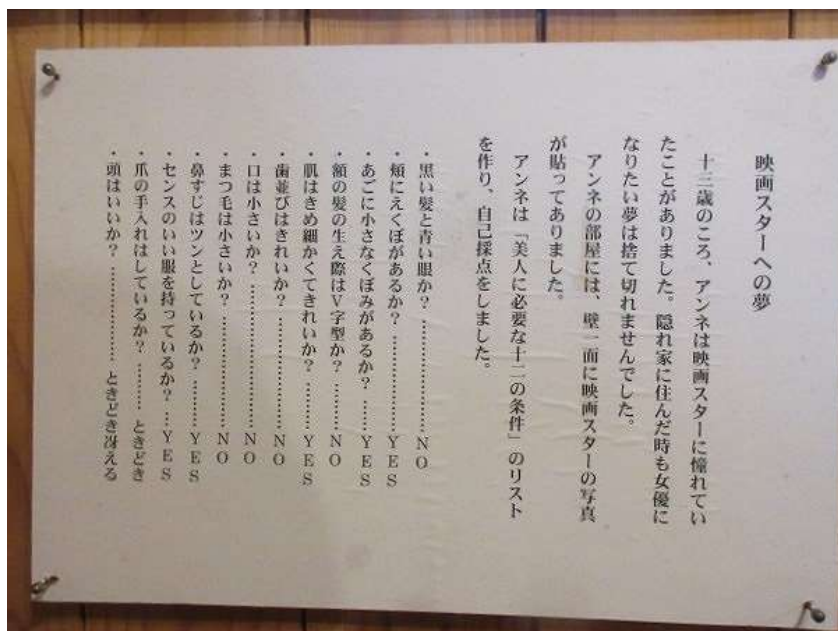 映画スターへの夢
十三歳のころ、アンネは映画スターに憧れてい
たことがありました。隠れ家に住んだ時も女優に
なりたい夢は捨て切れませんでした。
アンネの部屋には、壁一面に映画スターの写真
が貼ってありました。
アンネは「美人に必要な十二の条件」のリスト
を作り、自己採点をしました。
・黒い髪と青い眼か?…………………NO
・頬にえくぼがあるか?………………YES
・あごに小さなくぼみがあるか?……YES
・額の髪の生え際はV字型か?………NO
・肌はきめ細かくてきれいか?………YES
・歯並びはきれいか?…………………NO
・口は小さいか?………………………NO
・まつ毛は小さいか?…………………NO
・鼻すじはツンとしているか?………YES
・センスのいい服を持っているか?…YES
・爪の手入れはしているか?………ときどき
・頭はいいか?………………ときどき冴える